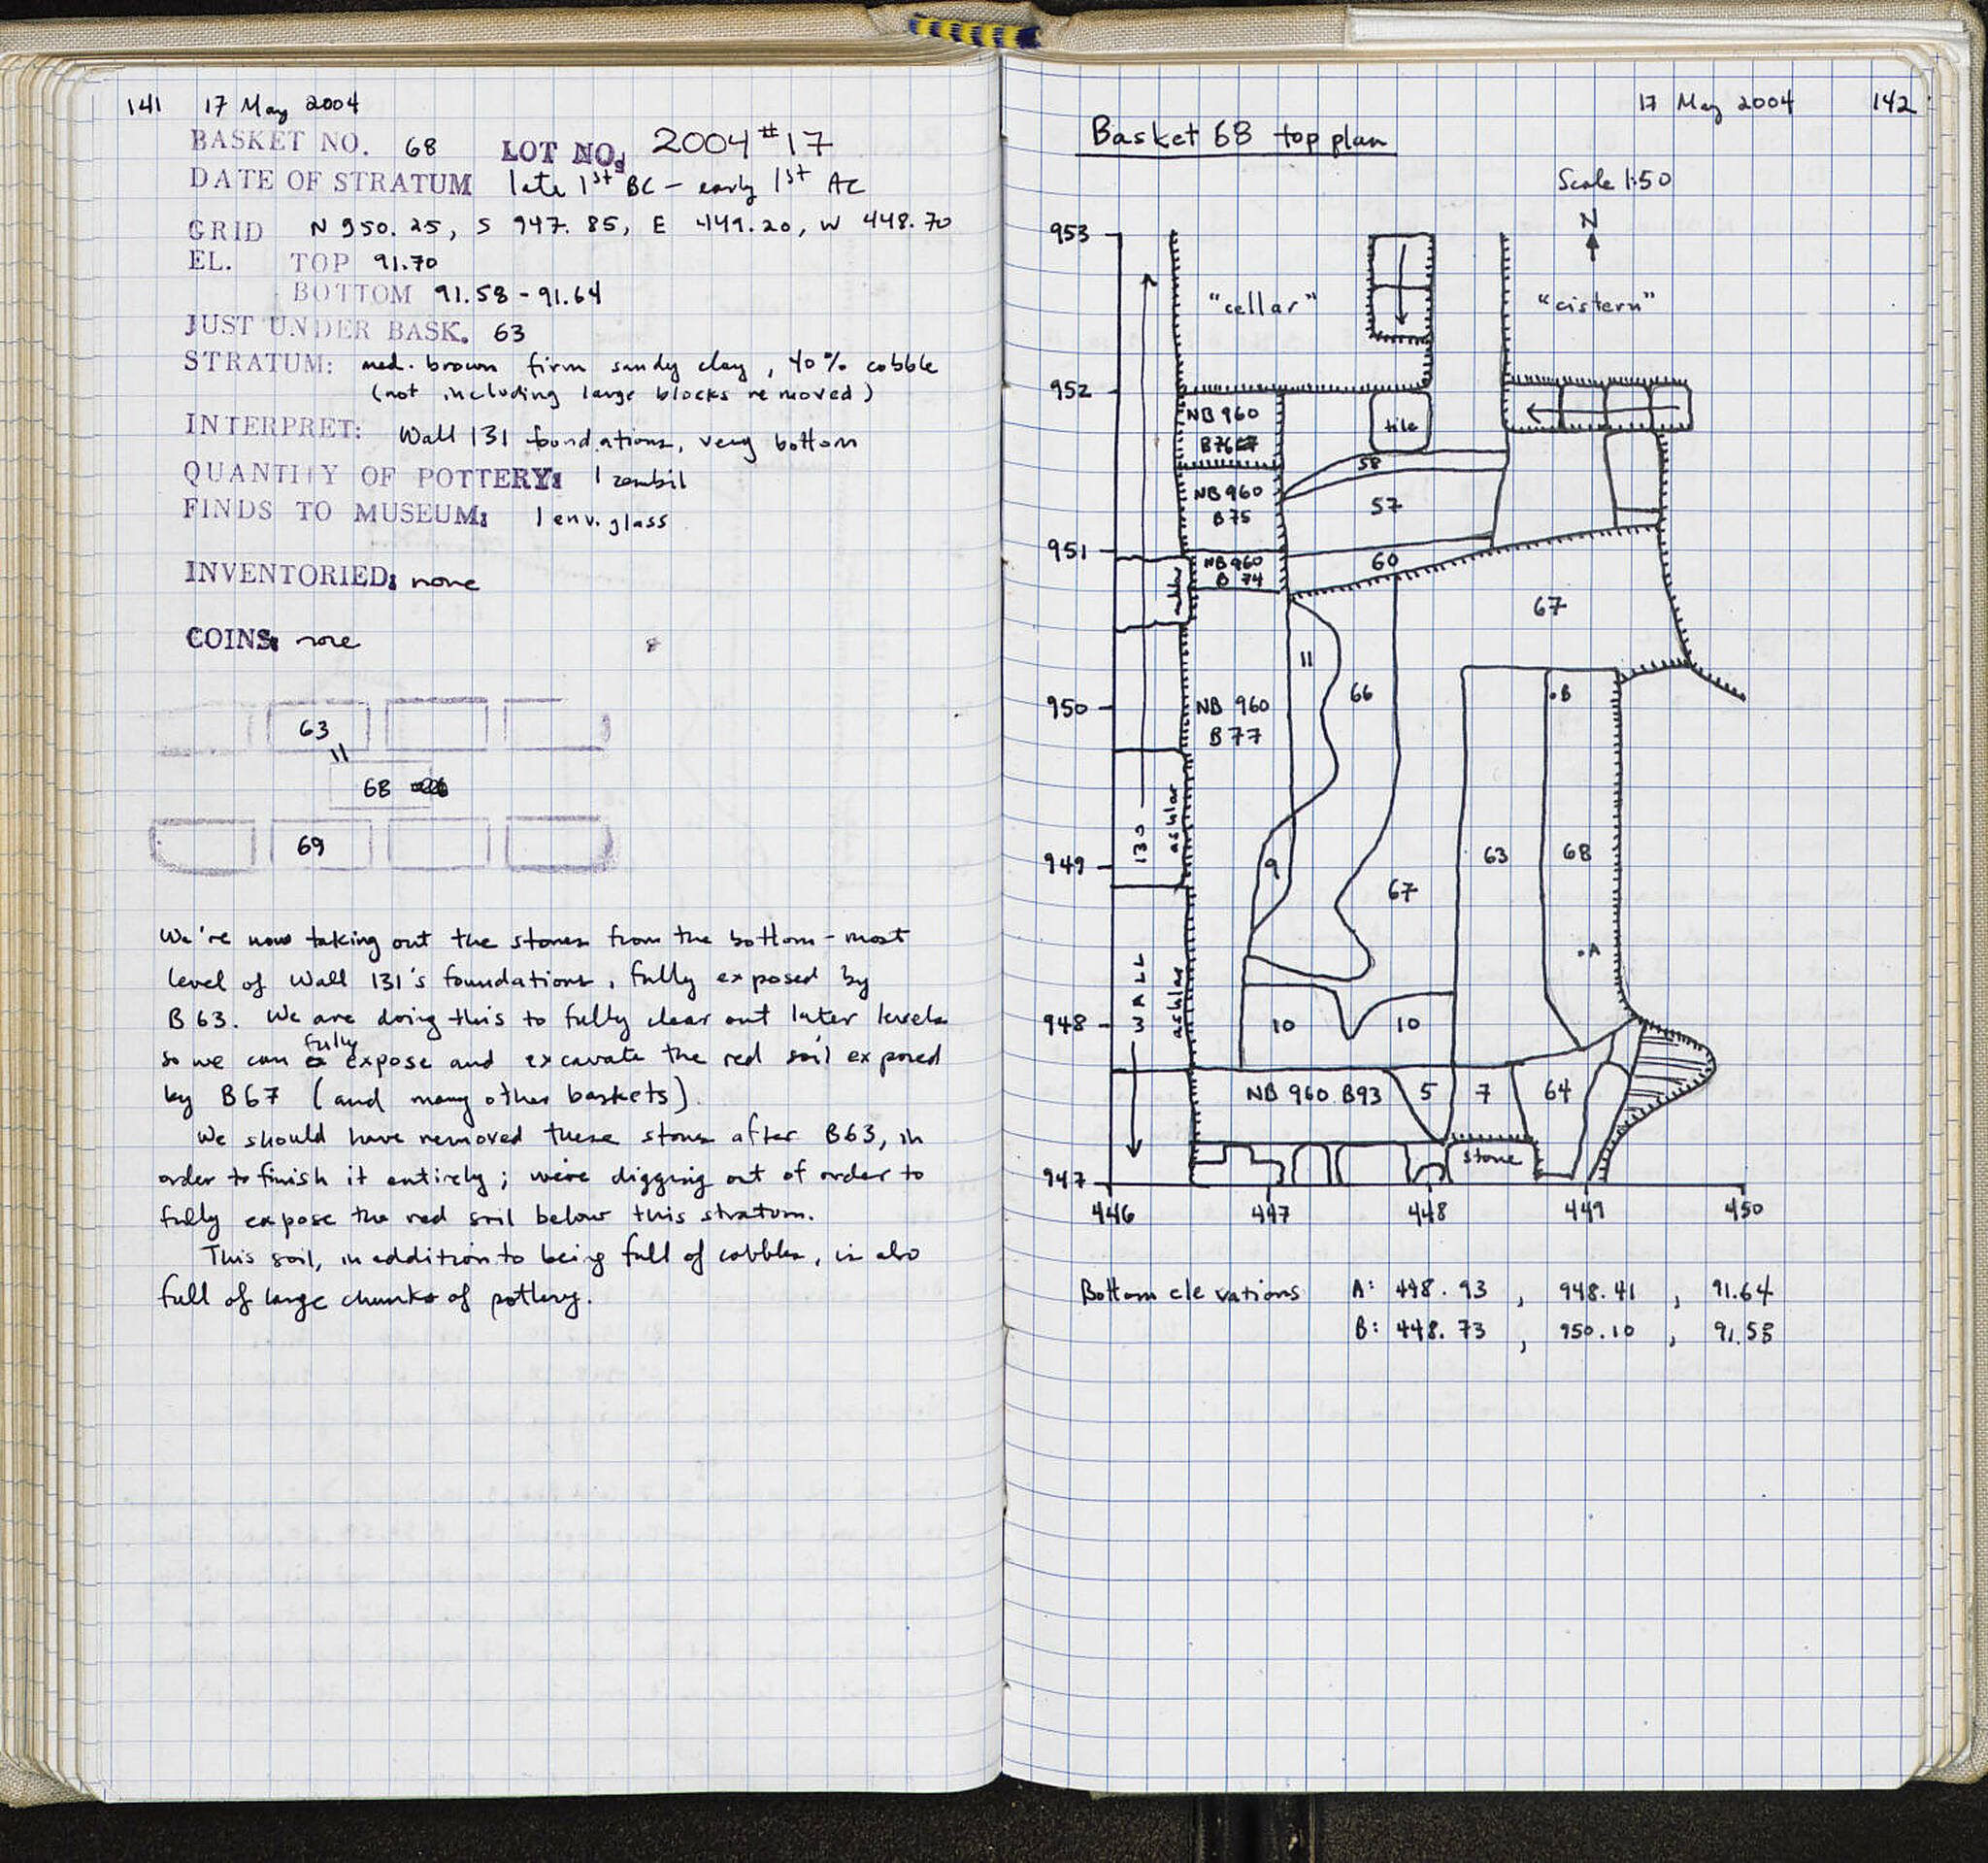 141 17 May 2004
BASKET NO. 68 LOT NO. 2004 #17
DATE OF STRATUM late 1st BC - early 1st AC
GRID N 950.25, S 947.85, E 449.20, W 448.70
EL. TOP 91.70
BOTTOM 91.58 - 91.64
JUST UNDER BASK. 63
STRATUM: med. brown firm sandy clay, 40% cobble
(not including large blocks removed)
INTERPRET: Wall 131 foundations, very bottom
QUANTITY OF POTTERY: 1 zembil
FINDS TO MUSEUM: 1 env. glass
INVENTORIED: none
COINS: none
63
68
69
We're now taking out the stones from the bottom-most
level of Wall 131's foundations, fully exposed by
B 63. We are doing this to fully clear out later levels
so we can fully expose and excavate the red soil exposed
by B67 (and many other baskets).
We should have removed these stones after B63, in
order to finish it entirely; we're digging out of order to
fully expose the red soil below this stratum.
This soil, in addition to being full of cobbles, is also
full of large chunks of pottery.
17 May 2004 142
Basket 68 top plan
Scale 1:50
N
953
"cellar"
"cistern"
952
NB 960
B76
tile
58
NB 960
B75
57
951
NB 960
B 74
60
67
11
66
950
B
NB 960
B77
130
ashlar
949
9
63
68
67
A
WALL
ashlar
948
10
10
NB 960 B93
5
7
64
stone
947
446
447
448
449
450
Bottom elevations A: 448.93, 948.41, 91.64
B: 448.73, 950.10, 91.58